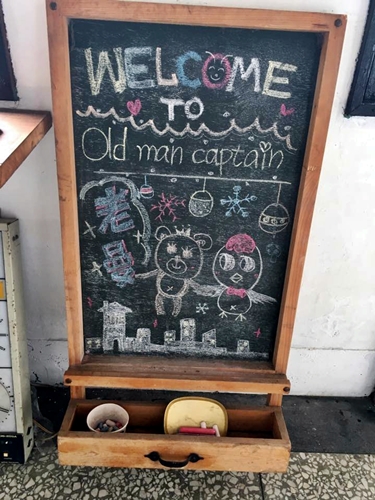 WELCOME
TO
Old man captain
老